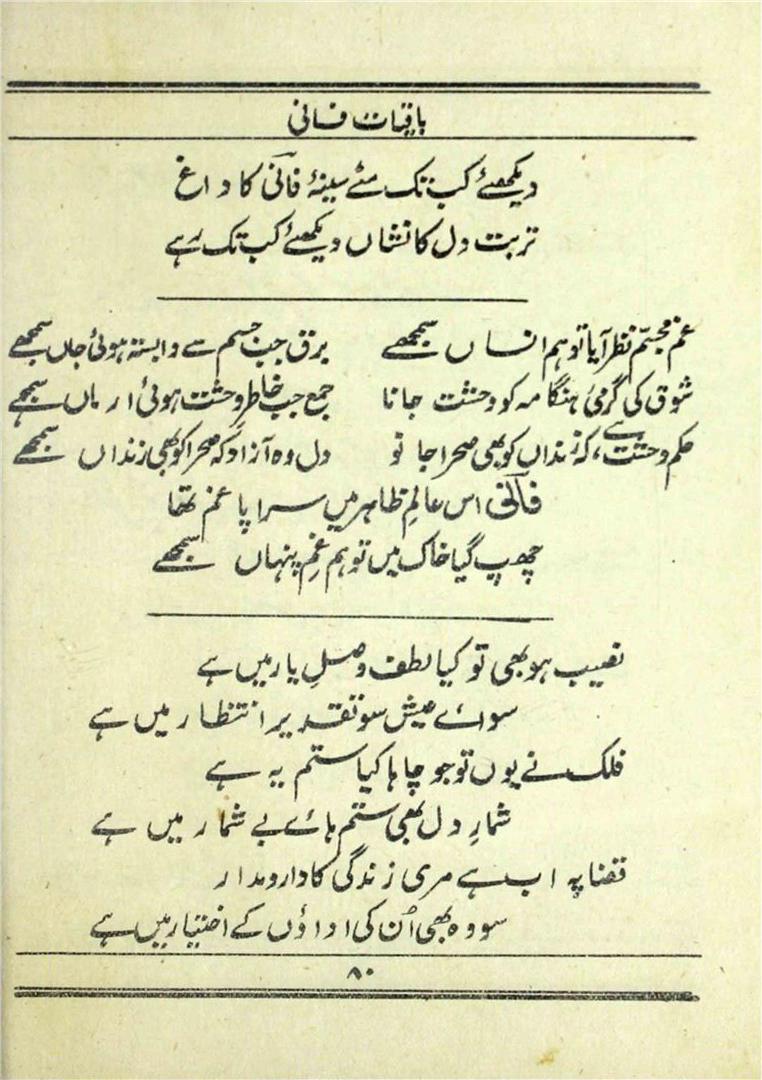 باقیات فانی
دیکھئے کب تک مٹے سینۂ فانی کا داغ
تربت دل کا نشاں دیکھئے کب تک رہے
غم مجسّم نظر آیا تو ہم انساں سمجھے برق جب جسم سے وابستہ ہوئی جاں سمجھے
شوق کی گرمیٔ ہنگامہ کو وحشت جانا جمع جب خاطر وحشت ہوئی ارماں سمجھے
حکم وحشت ہے، کہ زنداں کو بھی صحرا جانو دل وہ آزاد کہ صحرا کو بھی زنداں سمجھے
فانی اس عالمِ ظاہر میں سراپا غم تھا
چھپ گیا خاک میں تو ہم غمِ پنہاں سمجھے
نصیب ہو بھی تو کیا لطف وصلِ یار میں ہے
سوائے عیش سو تقدیر انتظار میں ہے
فلک نے یوں تو جو چاہا کیا ستم یہ ہے
شمارِ دل بھی ستم ہائے بے شمار میں ہے
قضا پہ اب ہے مری زندگی کا دارومدار
سو وہ بھی اُن کی اداؤں کے اختیار میں ہے
۸۰